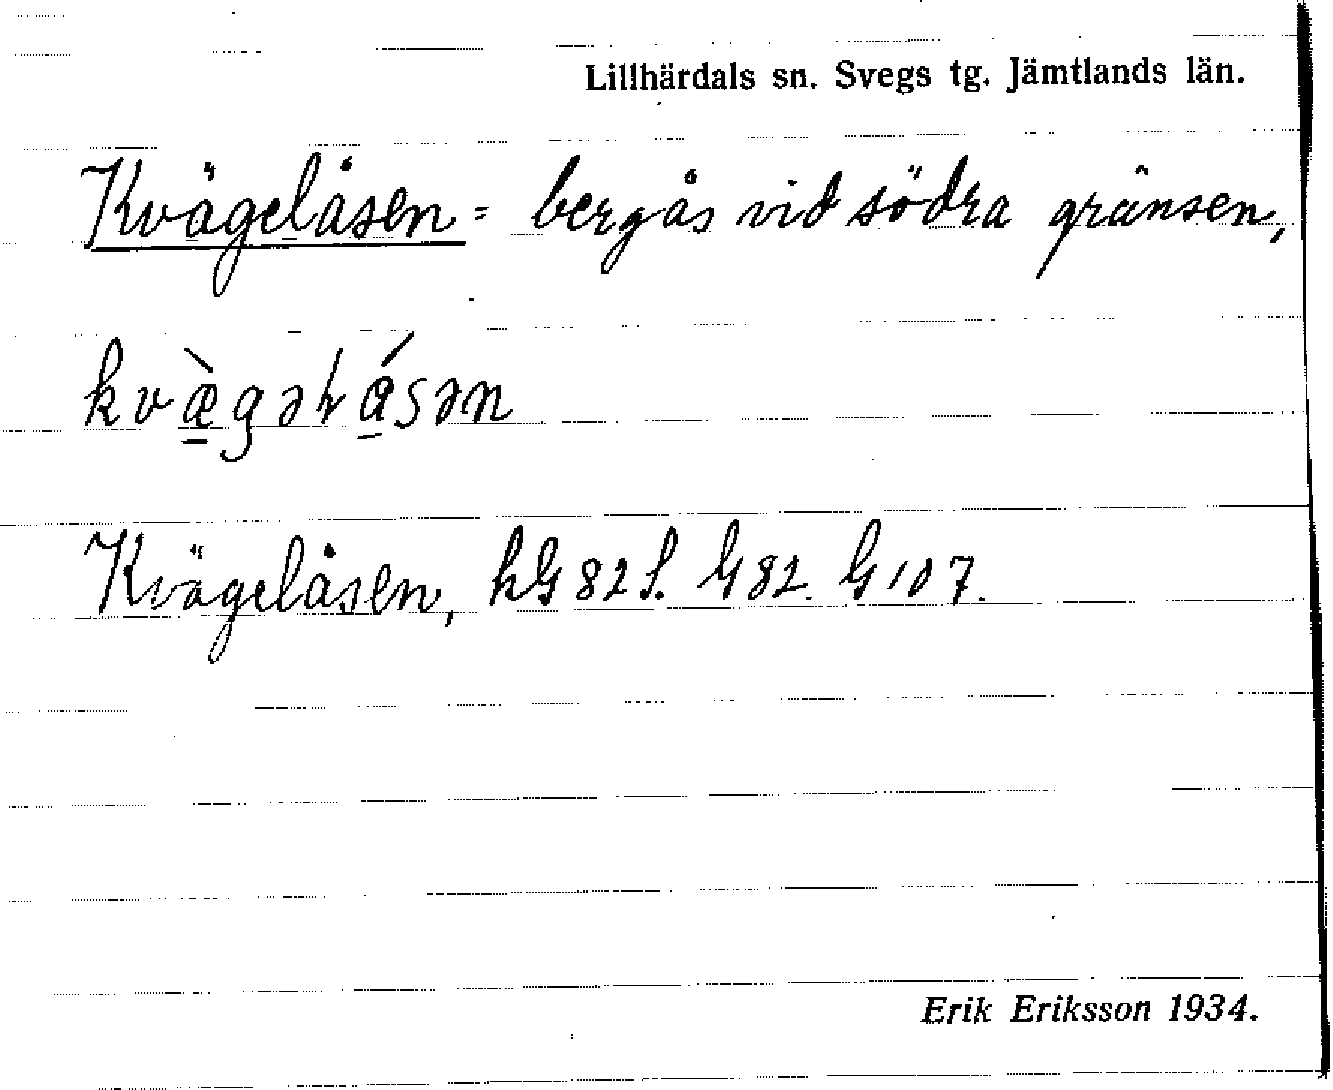 Lillhärdals sn. Svegs tg. Jämtlands län.
Kvägelåsen = bergås vid södra gränsen,
Kvägelåsen, hG 82 f. G 82. G 107.
Erik Eriksson 1934.